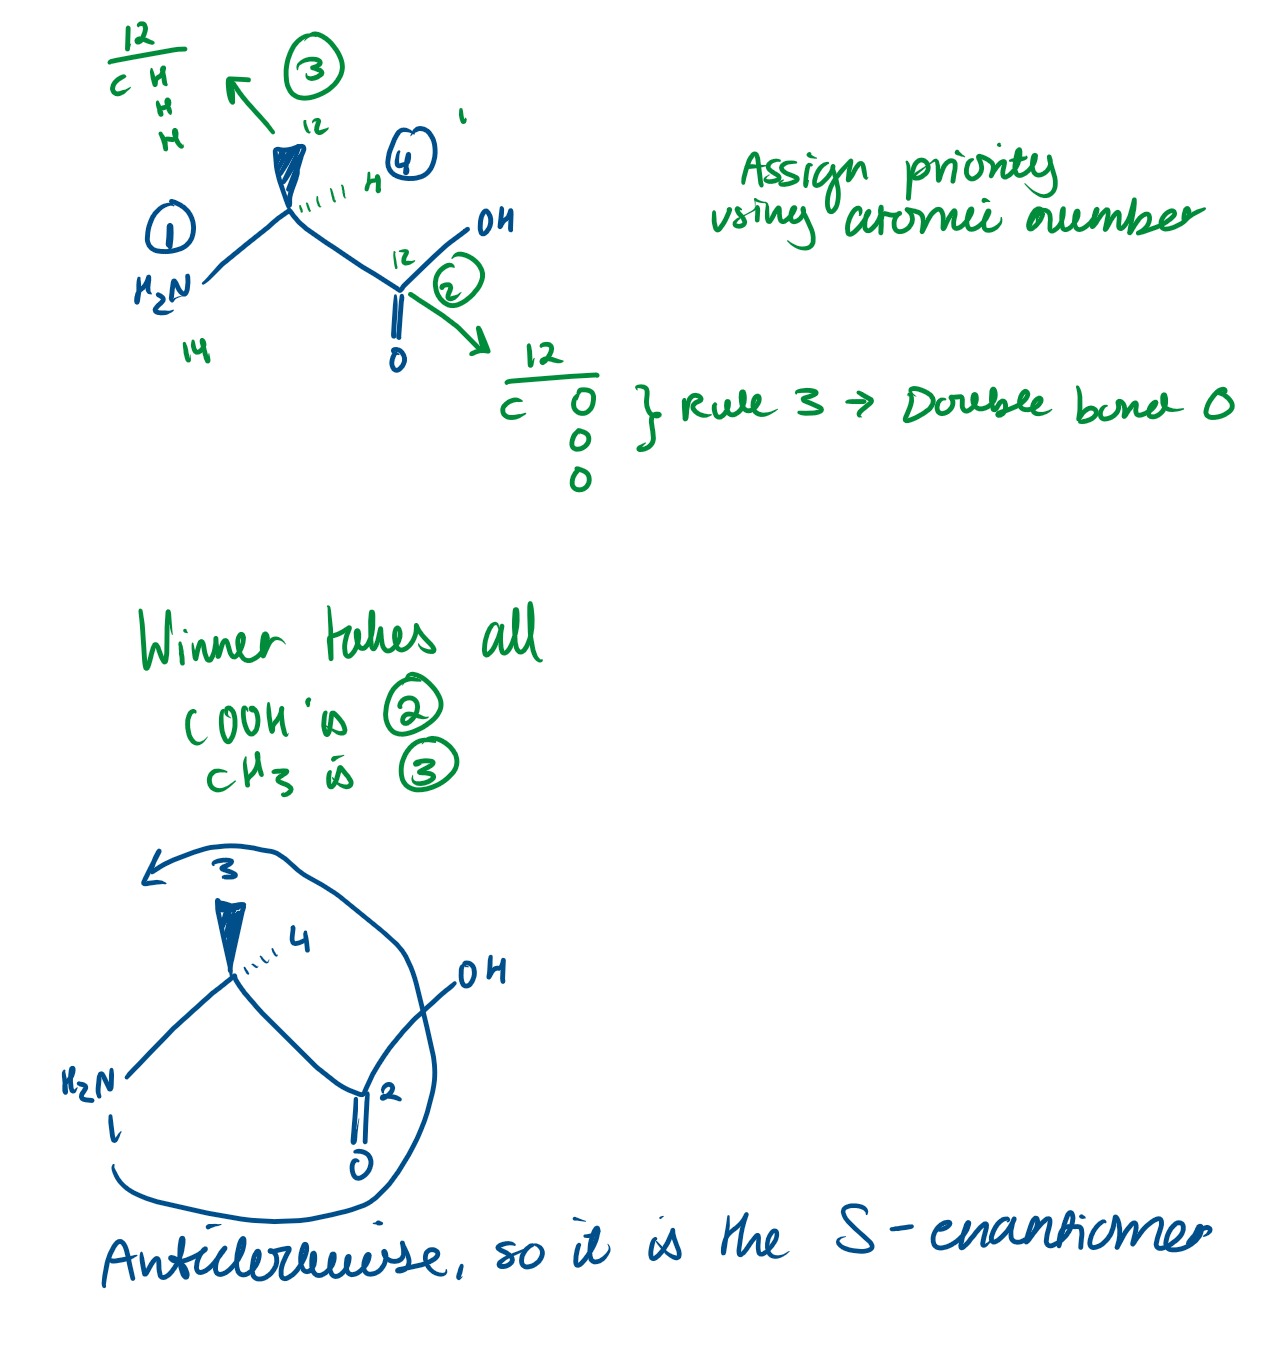 12
C H
H
H
3
12
H
4
1
1
H₂N
14
12
OH
2
O
Assign priority
using atomic number
12
C O
O
O
} Rule 3 → Double bond O
Winner takes all
COOH is 2
CH₃ is 3
3
4
OH
H₂N
1
2
O
Anticlockwise, so it is the S-enantiomer